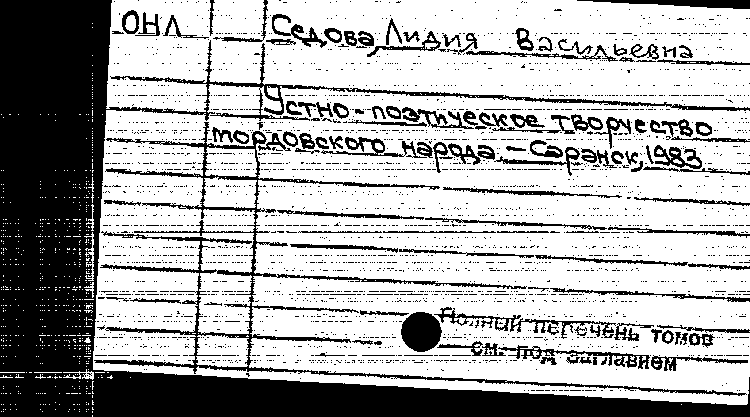 ОНЛ
Седова, Лидия Васильевна
Устно-поэтическое творчество
мордовского народа. - Саранск, 1983
Полный перечень томов
см. под заглавием